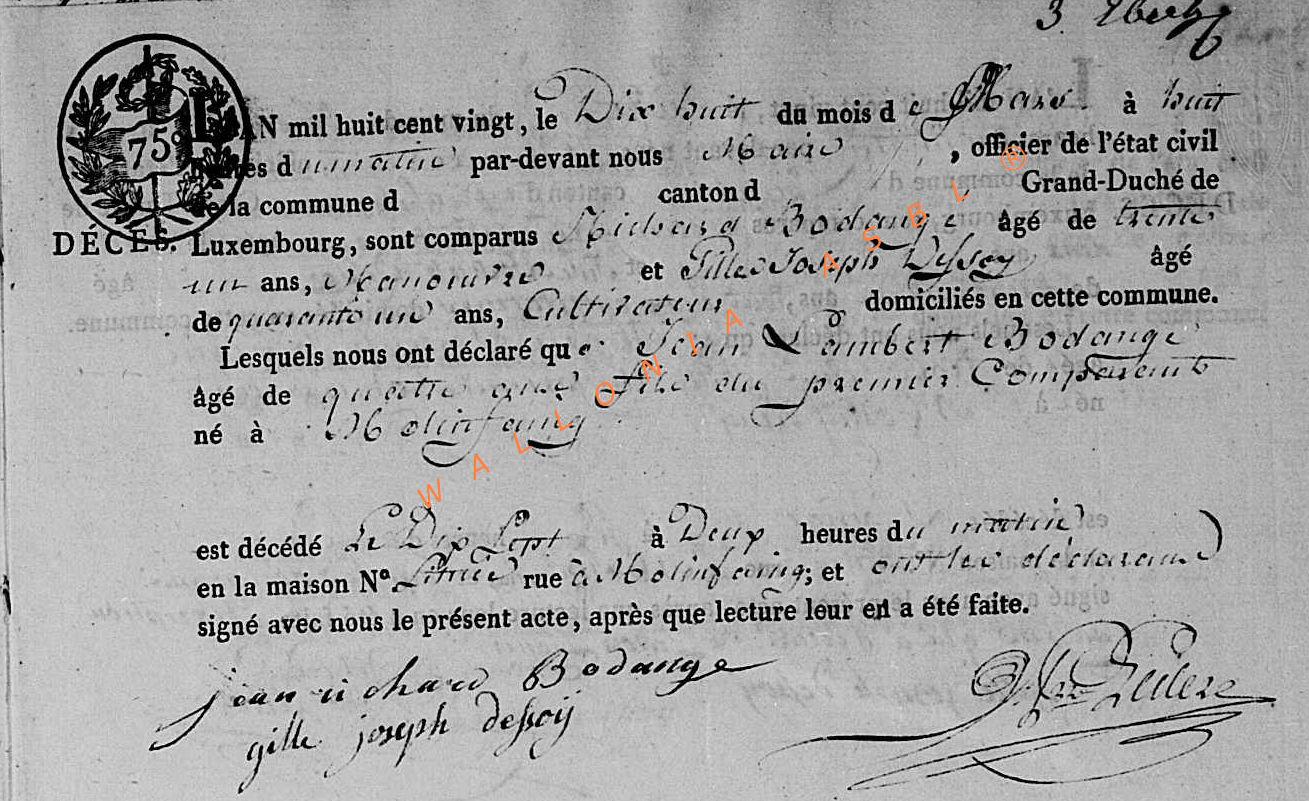 3
75
L'AN mil huit cent vingt, le Dix huit du mois de Mars à huit
heures du matin par-devant nous Maire, officier de l'état civil
de la commune d canton d Grand-Duché de
DÉCÈS. Luxembourg, sont comparus Richard Bodange âgé de trente
un ans, Manouvre et Gille Joseph Dessoy âgé
de quarante un ans, Cultivateur domiciliés en cette commune.
Lesquels nous ont déclaré que Jean Lambert Bodange
âgé de quattre ans fils du premier Comparant
né à Molinfaing
est décédé Le Dix Sept à Deux heures du matin
en la maison Nº. Sitüée rue à Molinfaing; et ont les déclarans
signé avec nous le présent acte, après que lecture leur en a été faite.
jean richard Bodange
gille joseph dessoÿ
Leclere
WALLONIA ASBL ®